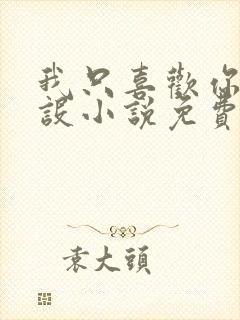 我只喜歡你
設小說免費
袁大頭